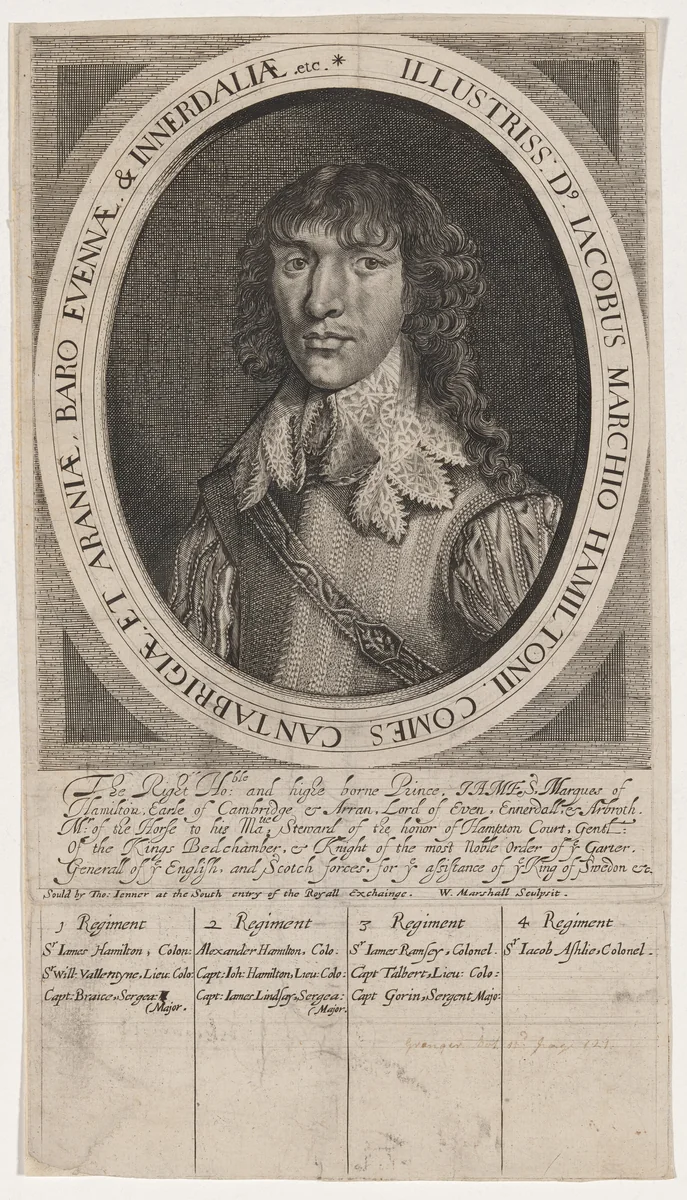 ILLUSTRISS: D⁹. IACOBUS MARCHIO HAMILTONII. COMES CANTABRIGIÆ. ET ARANIÆ, BARO EVENNÆ, & INNERDALIÆ .etc. *
The Right Hoble: and highe borne Prince, IAMES, Marques of
Hamilton, Earle of Cambridge & Arran, Lord of Even, Ennerdall, & Arbroth.
Mr: of the Horse to his Matie: Steward of the honor of Hampton Court, Gentl:
Of the Kings Bedchamber, & Knight of the most Noble Order of ye Garter.
Generall of ye English, and Scotch forces, for ye assistance of ye King of Swedon &c.
Sould by Tho: Ienner at the South entry of the Royall Exchainge. W. Marshall Sculpsit.
1 Regiment
Sr Iames Hamilton, Colon:
Sr Will: Vallentyne, Lieu: Colo:
Capt: Braice, Sergea:
(Major.
2 Regiment
Alexander Hamilton, Colo.
Capt: Ioh: Hamilton, Lieu: Colo:
Capt: Iames Lindsay, Sergea:
(Major.
3 Regiment
Sr Iames Ramsey, Colonel.
Capt Talbert, Lieu: Colo:
Capt Gorin, Sergent Major
4 Regiment
Sr Iacob Ashlie, Colonel.
Granger